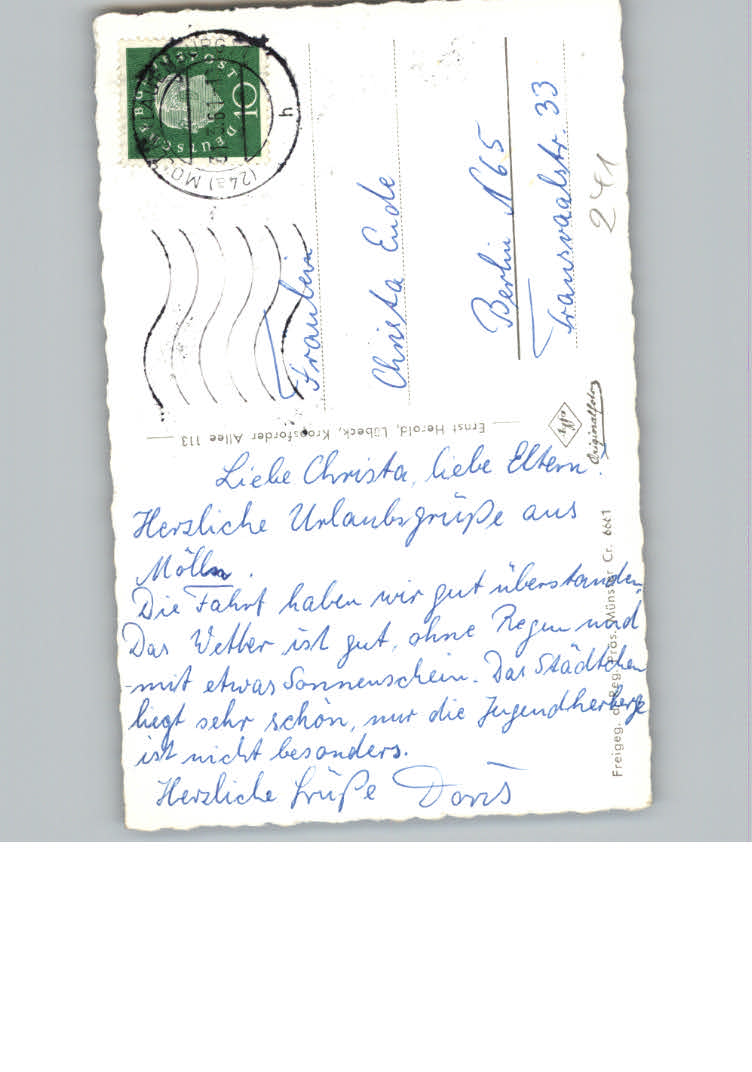 Liebe Christa, liebe Eltern!
Herzliche Urlaubsgrüße aus
Mölln.
Die Fahrt haben wir gut überstanden.
Das Wetter ist gut, ohne Regen und
mit etwas Sonnenschein. Das Städtchen
liegt sehr schön, nur die Jugendherberge
ist nicht besonders.
Herzliche Grüße Doris
Fräulein
Christa Ende
Berlin N 65
Transvaalstr. 33
241
DEUTSCHE BUNDESPOST
10
(24a)
h
Ernst Herold, Lübeck, Kronsforder Allee 113
Agfa
Originalfoto
Freigeg. d. Reg. Präs. Münster Cr. 6661